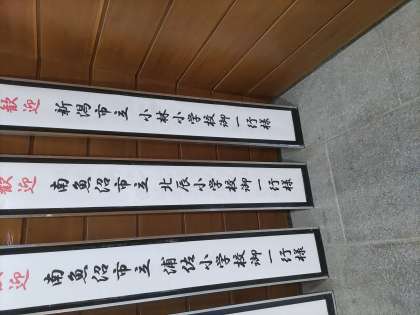 歓迎 新潟市立 小林小学校御一行様
歓迎 南魚沼市立 北辰小学校御一行様
歓迎 南魚沼市立 浦佐小学校御一行様